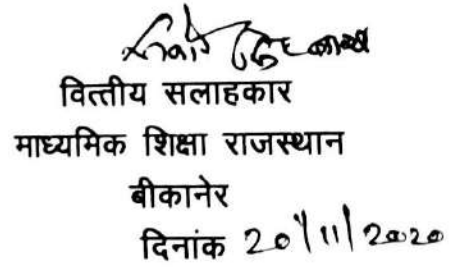 वित्तीय सलाहकार
माध्यमिक शिक्षा राजस्थान
बीकानेर
दिनांक 20/11/2020